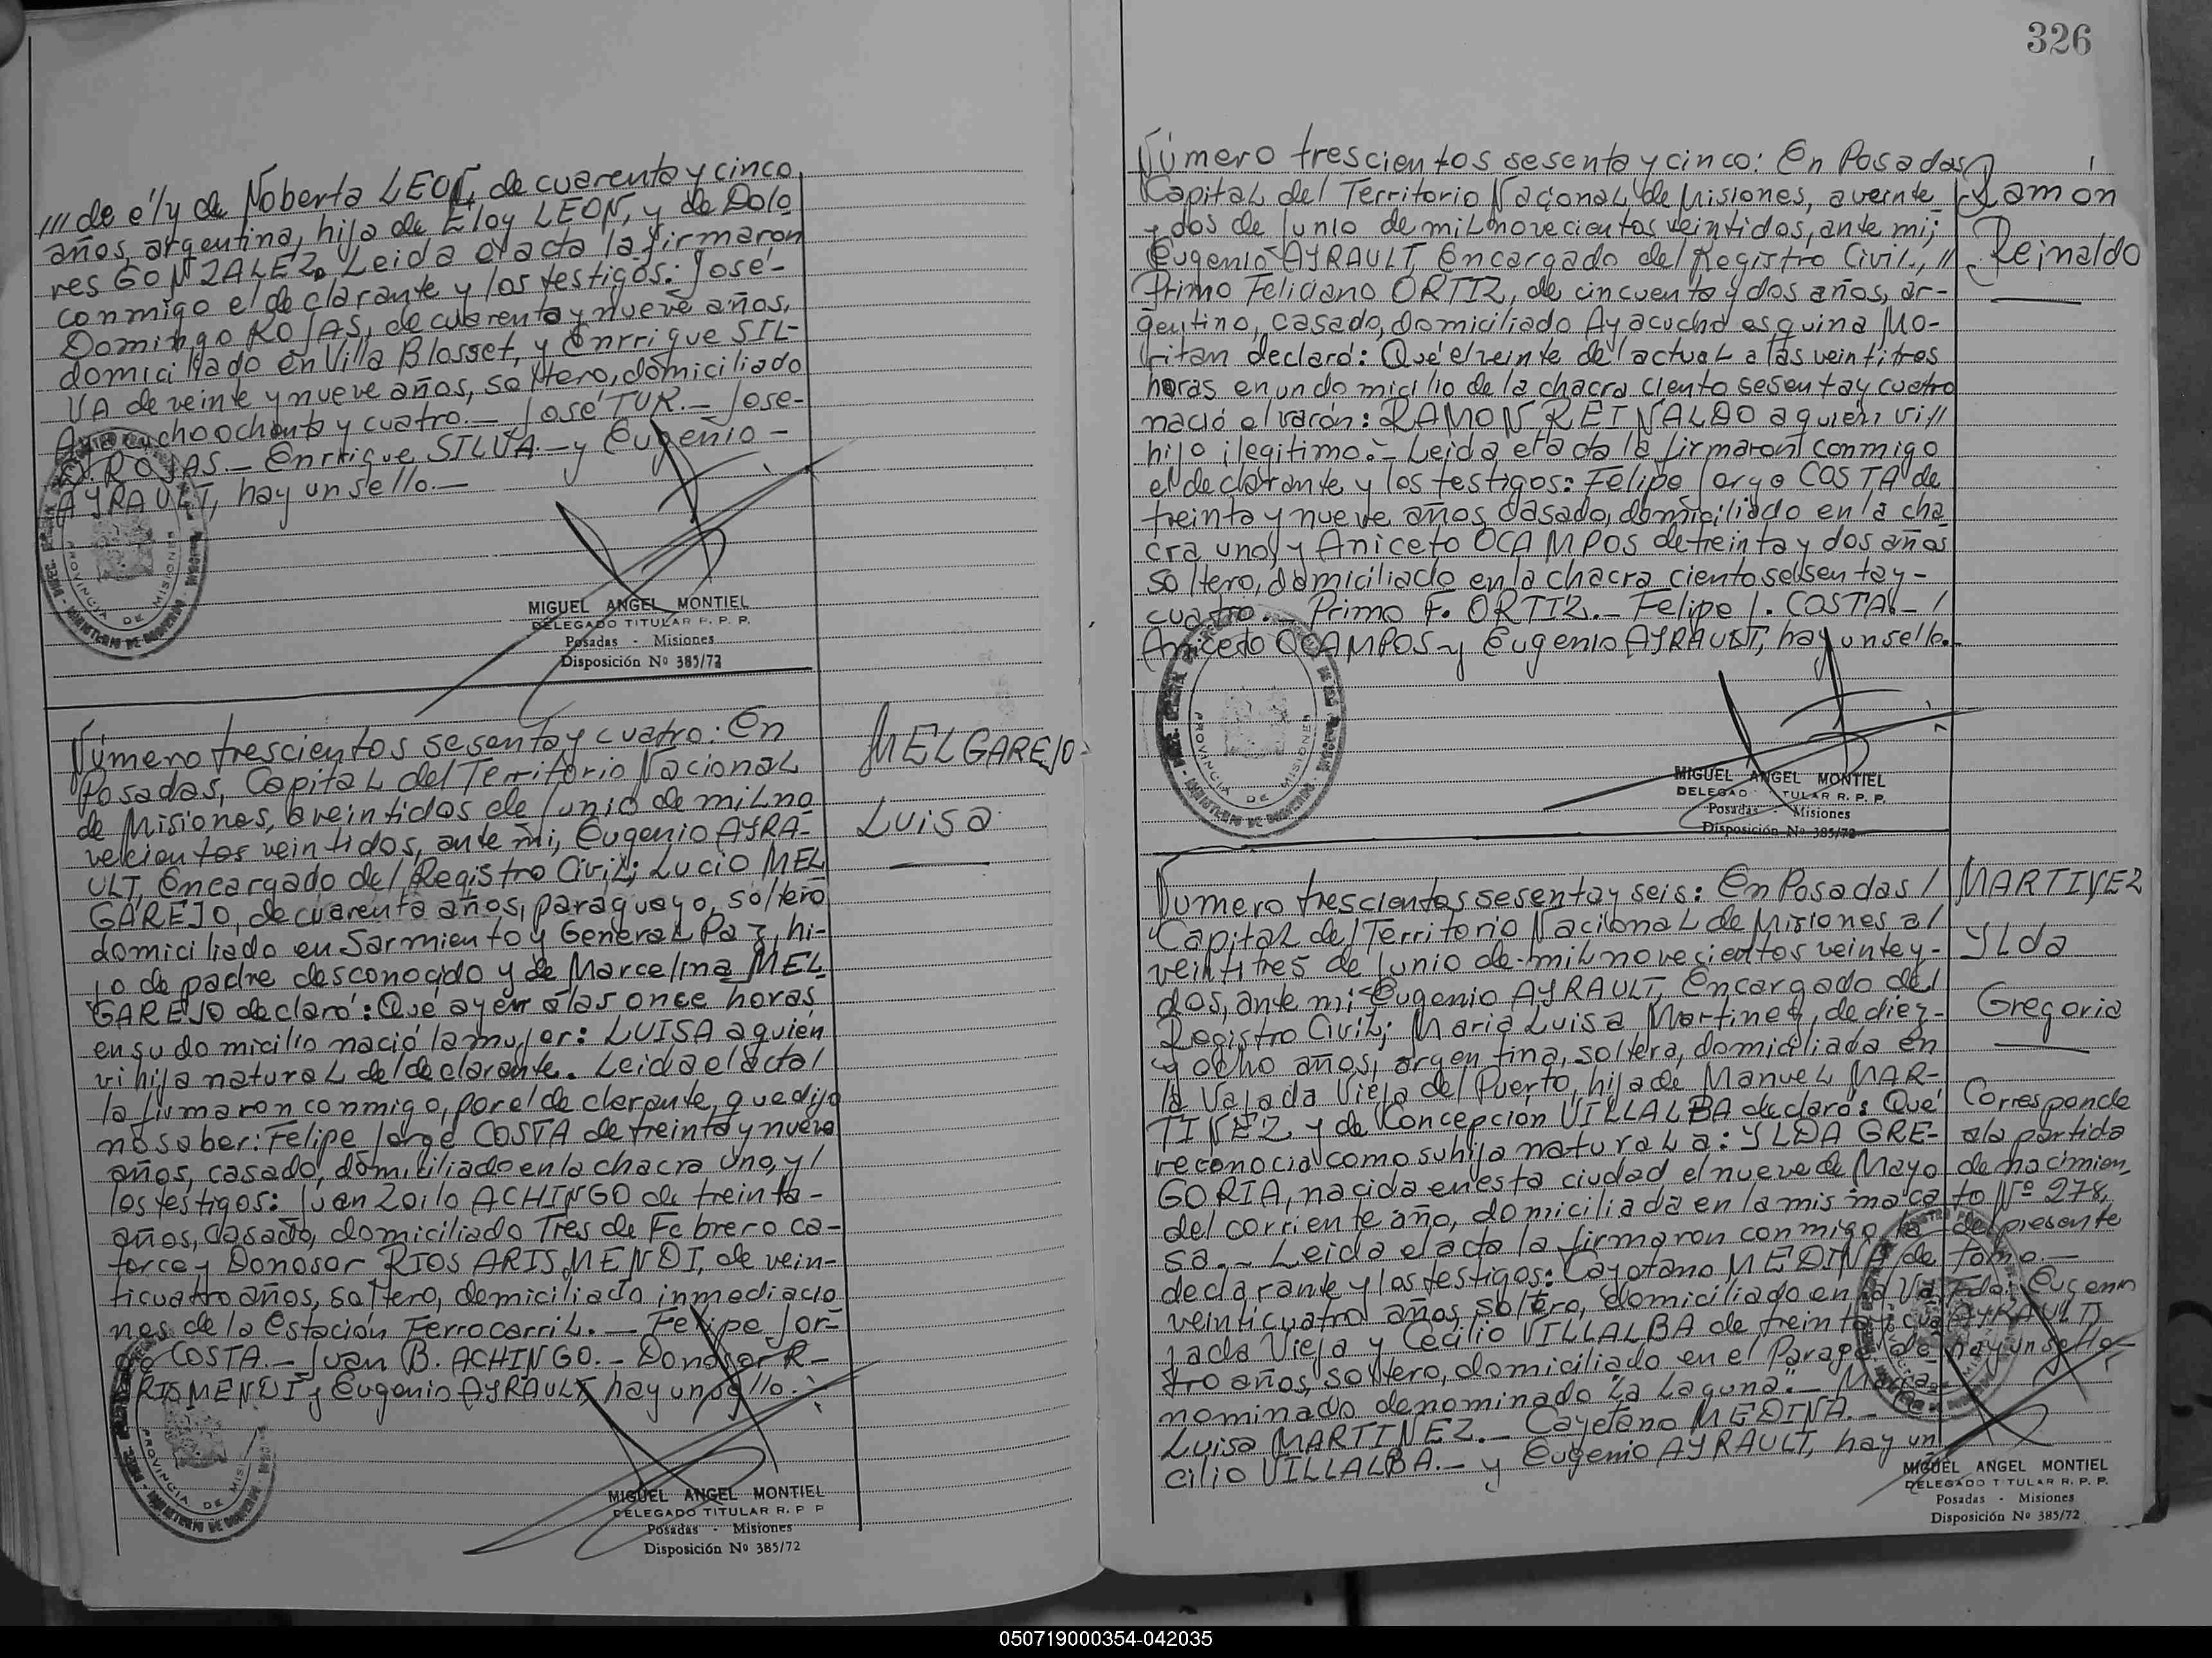 /// de él y de Noberta LEON, de cuarenta y cinco
años, argentina, hija de Eloy LEON, y de Dolo
res GONZALEZ. Leida el acta la firmaron
conmigo el declarante y los testigos: José-
Domingo ROJAS, de cuarenta y nueve años,
domiciliado en Villa Blosset, y Enrrique SIL-
VA de veinte y nueve años, soltero, domiciliado
Ayacucho ochenta y cuatro.— José TUR.— Jose-
D. ROJAS.— Enrrique SILVA.— y Eugenio —
AYRAULT, hay un sello.—
PROVINCIA DE MISIONES
MIGUEL ANGEL MONTIEL
DELEGADO TITULAR R. P. P.
Posadas - Misiones
Disposición Nº 385/72
Número trescientos sesenta y cuatro: En
Posadas, Capital del Territorio Nacional
de Misiones, a veintidos de Junio de mil no
vecientos veintidos, ante mi, Eugenio AYRA-
ULT, Encargado del Registro Civil; Lucio MEL
GAREJO, de cuarenta años, paraguayo, soltero
domiciliado en Sarmiento y General Paz, hi-
jo de padre desconocido y de Marcelina MEL
GAREJO declaró: Qué ayer a las once horas
en su domicilio nació la mujer: LUISA a quién
vi hija natural del declarante. Leida el acta/
la firmaron conmigo, por el declarante, que dijo
no saber: Felipe Jorge COSTA de treinta y nueve
años, casado, domiciliado en la chacra uno, y /
los testigos: Juan Zoilo ACHINGO de treinta-
años, casado, domiciliado Tres de Febrero ca-
torce y Donosor RIOS ARISMENDI, de vein-
ticuatro años, soltero, domiciliado inmediacio
nes de la Estación Ferrocarril.— Felipe Jor-
ge COSTA.— Juan B. ACHINGO.— Donosor R—
RISMENDI y Eugenio AYRAULT, hay un sello.
MELGAREJO-
Luisa
PROVINCIA DE MISIONES
MIGUEL ANGEL MONTIEL
DELEGADO TITULAR R. P. P
Posadas - Misiones
Disposición Nº 385/72
326
Número trescientos sesenta y cinco: En Posadas
Capital del Territorio Nacional de Misiones, a veinte
y dos de Junio de mil novecientos veintidos, ante mi;
Eugenio AYRAULT, Encargado del Registro Civil, //
Primo Feliciano ORTIZ, de cincuenta y dos años, ar-
gentino, casado, domiciliado Ayacucho esquina Mo-
ritan declaró: Qué el veinte del actual a las veintitres
horas en un domicilio de la chacra ciento sesenta y cuatro
nació el varón: RAMON REINALDO a quién vi //
hijo ilegitimo.— Leida el acta la firmaron conmigo
el declarante y los testigos: Felipe Jorge COSTA de
treinta y nueve años, casado, domiciliado en la cha
cra uno, y Aniceto OCAMPOS de treinta y dos años
soltero, domiciliado en la chacra ciento sesenta y-
cuatro.— Primo F. ORTIZ.— Felipe J. COSTA.— /
Aniceto OCAMPOS y Eugenio AYRAULT, hay un sello.-
Ramón
Reinaldo
PROVINCIA DE MISIONES
MIGUEL ANGEL MONTIEL
DELEGAO TULAR R. P. P.
Posadas Misiones
Disposición Nº 385/72
Número trescientos sesenta y seis: En Posadas /
Capital del Territorio Nacional de Misiones, al
veintitres de Junio de mil novecientos veinte y-
dos, ante mi Eugenio AYRAULT, Encargado del
Registro Civil; Maria Luisa Martinez, de diez-
y ocho años, argentina, soltera, domiciliada en
la Vajada Vieja del Puerto, hija de Manuel MAR-
TINEZ y de Concepción VILLALBA declaró: Qué
reconocia como su hija natural a: YLDA GRE-
GORIA, nacida en esta ciudad el nueve de Mayo
del corriente año, domiciliada en la misma ca
sa.— Leida el acta la firmaron conmigo la
declarante y los testigos: Cayetano MEDINA de
veinticuatro años, soltero, domiciliado en la Va
jada Vieja y Cecilio VILLALBA de treinta y cua
tro años, soltero, domiciliado en el Paraje de
nominado denominado "La Laguna".— Maria
Luisa MARTINEZ.— Cayetano MEDINA.—
cilio VILLALBA.— y Eugenio AYRAULT, hay un
MARTINEZ
YLda
Gregoria
Corresponde
a la partida
de nacimien
to Nº 278,
del presente
tomo.—
Eugenio
AYRAULT
hay un sello
MIGUEL ANGEL MONTIEL
DELEGADO TITULAR R. P. P.
Posadas - Misiones
Disposición Nº 385/72
050719000354-042035